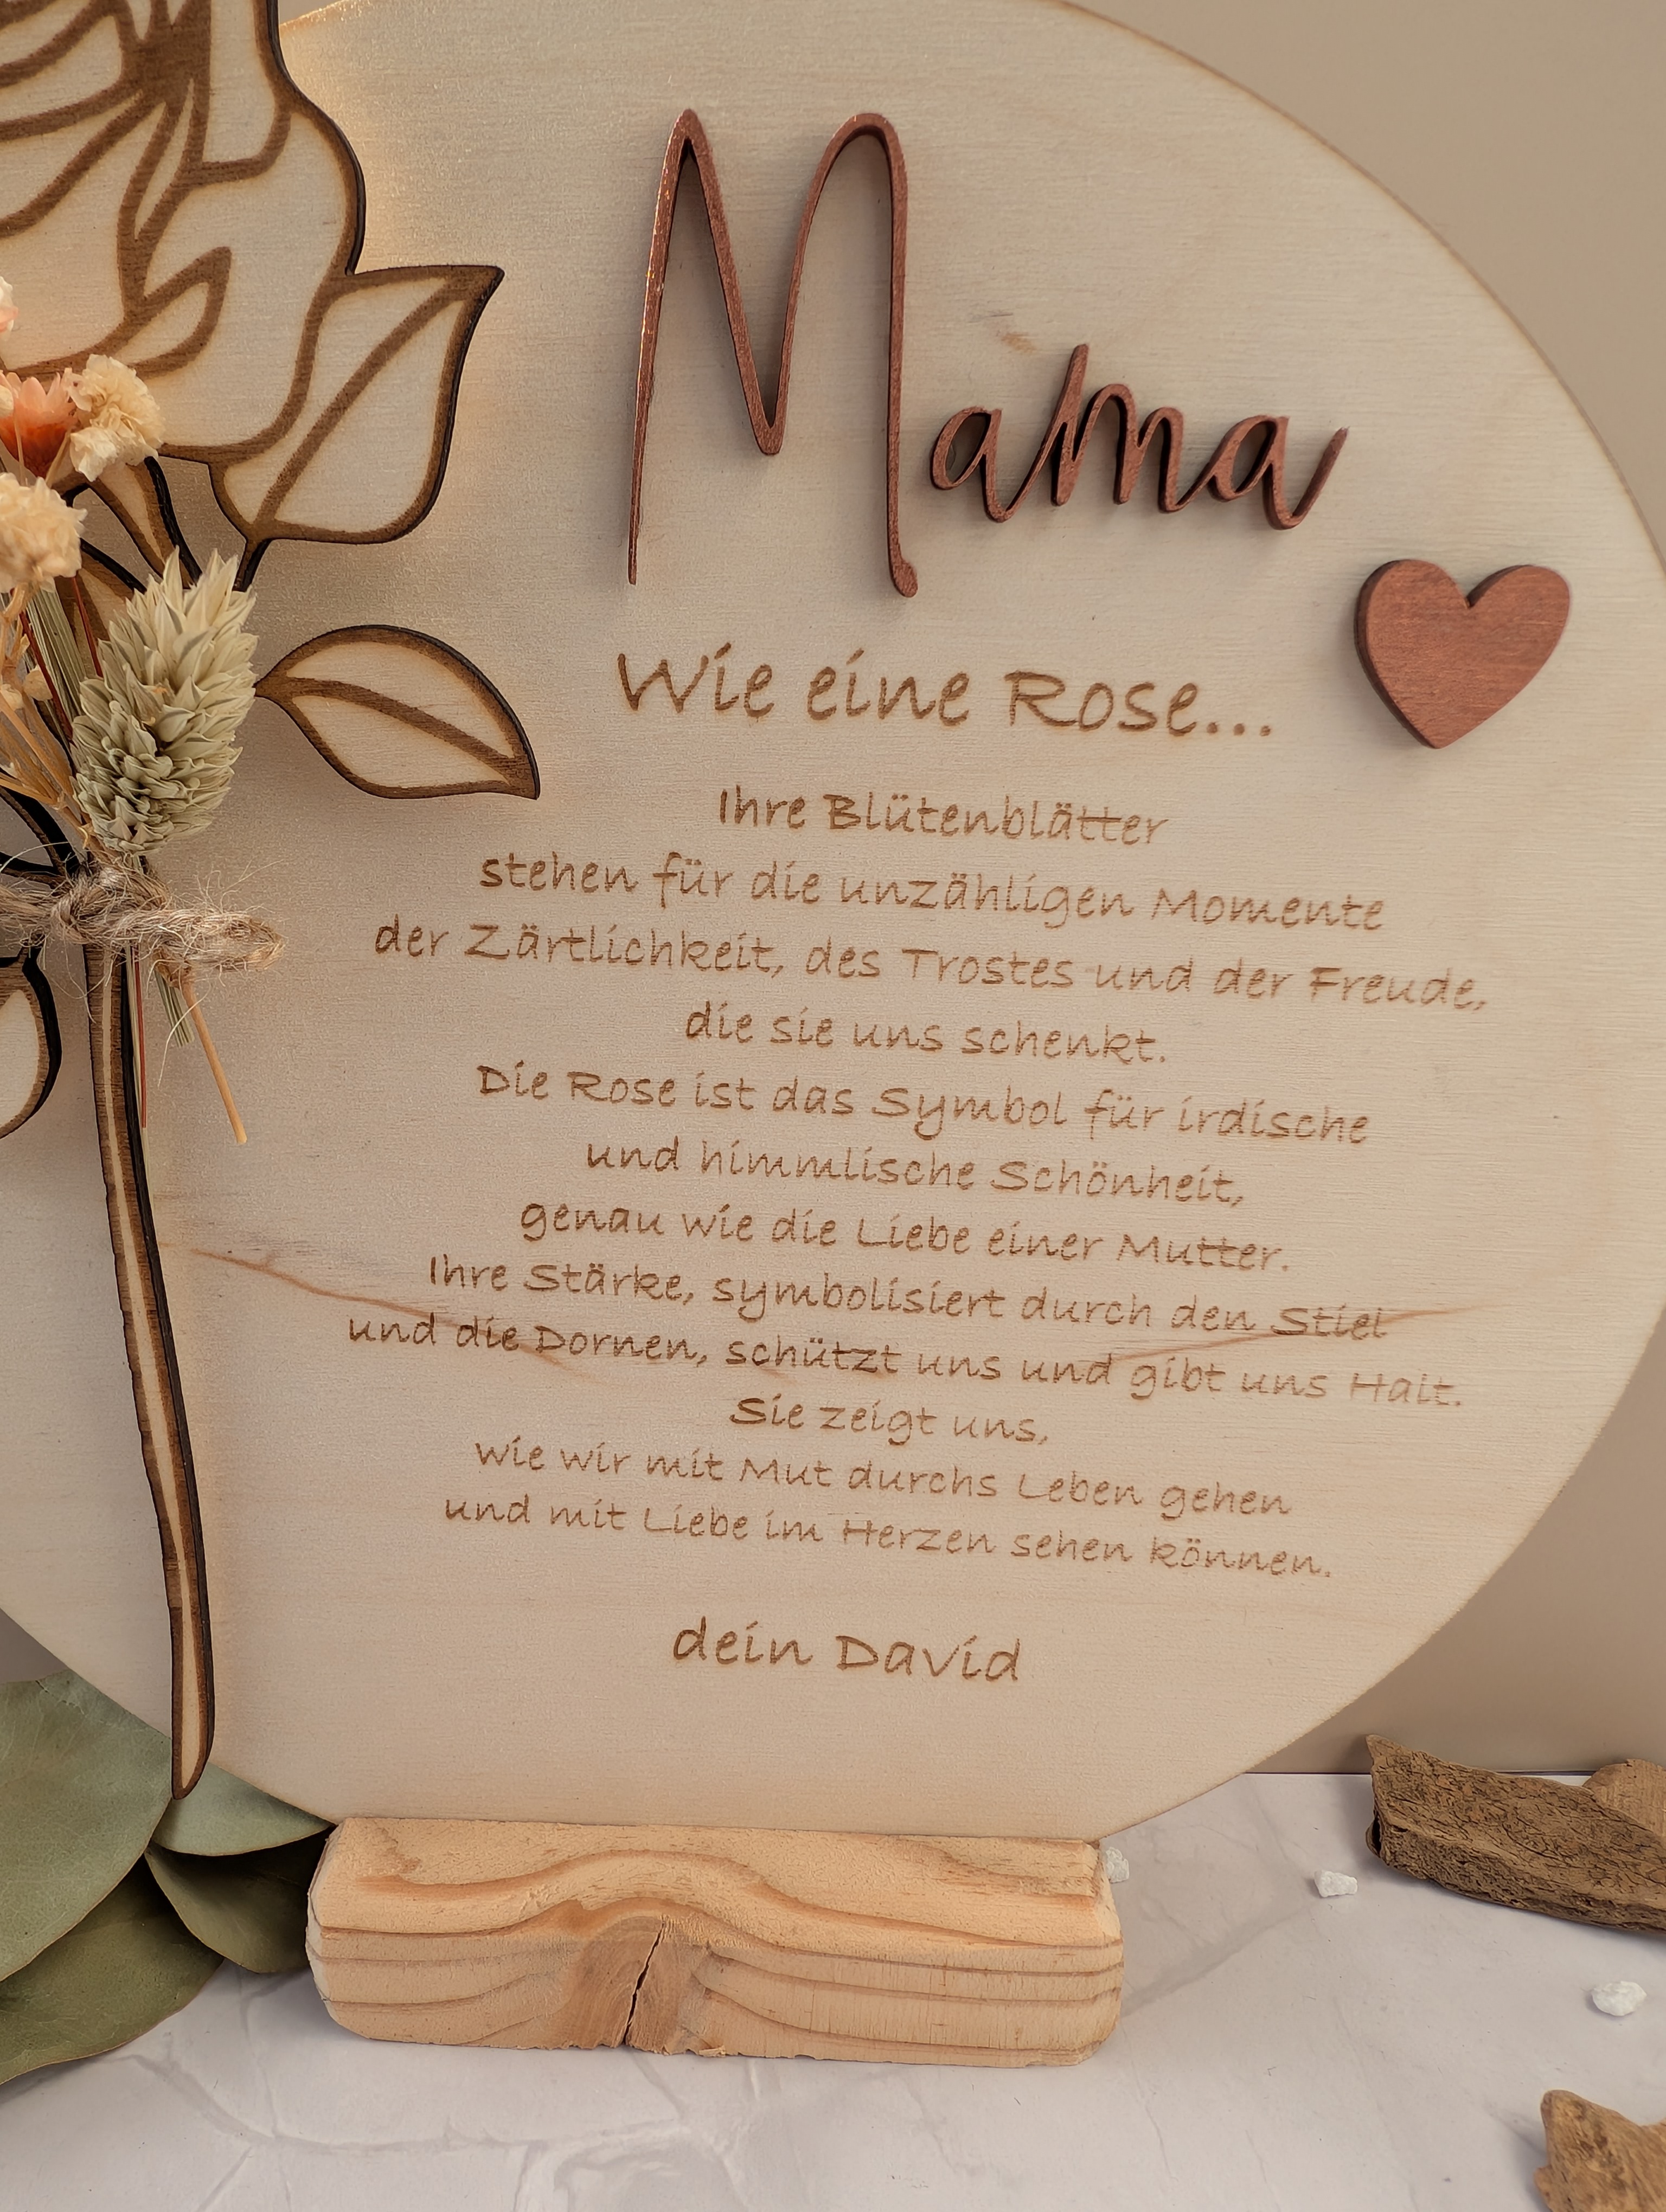 Mama
Wie eine Rose...
Ihre Blütenblätter
stehen für die unzähligen Momente
der Zärtlichkeit, des Trostes und der Freude,
die sie uns schenkt.
Die Rose ist das Symbol für irdische
und himmlische Schönheit,
genau wie die Liebe einer Mutter.
Ihre Stärke, symbolisiert durch den Stiel
und die Dornen, schützt uns und gibt uns Halt.
Sie zeigt uns,
wie wir mit Mut durchs Leben gehen
und mit Liebe im Herzen sehen können.
dein David